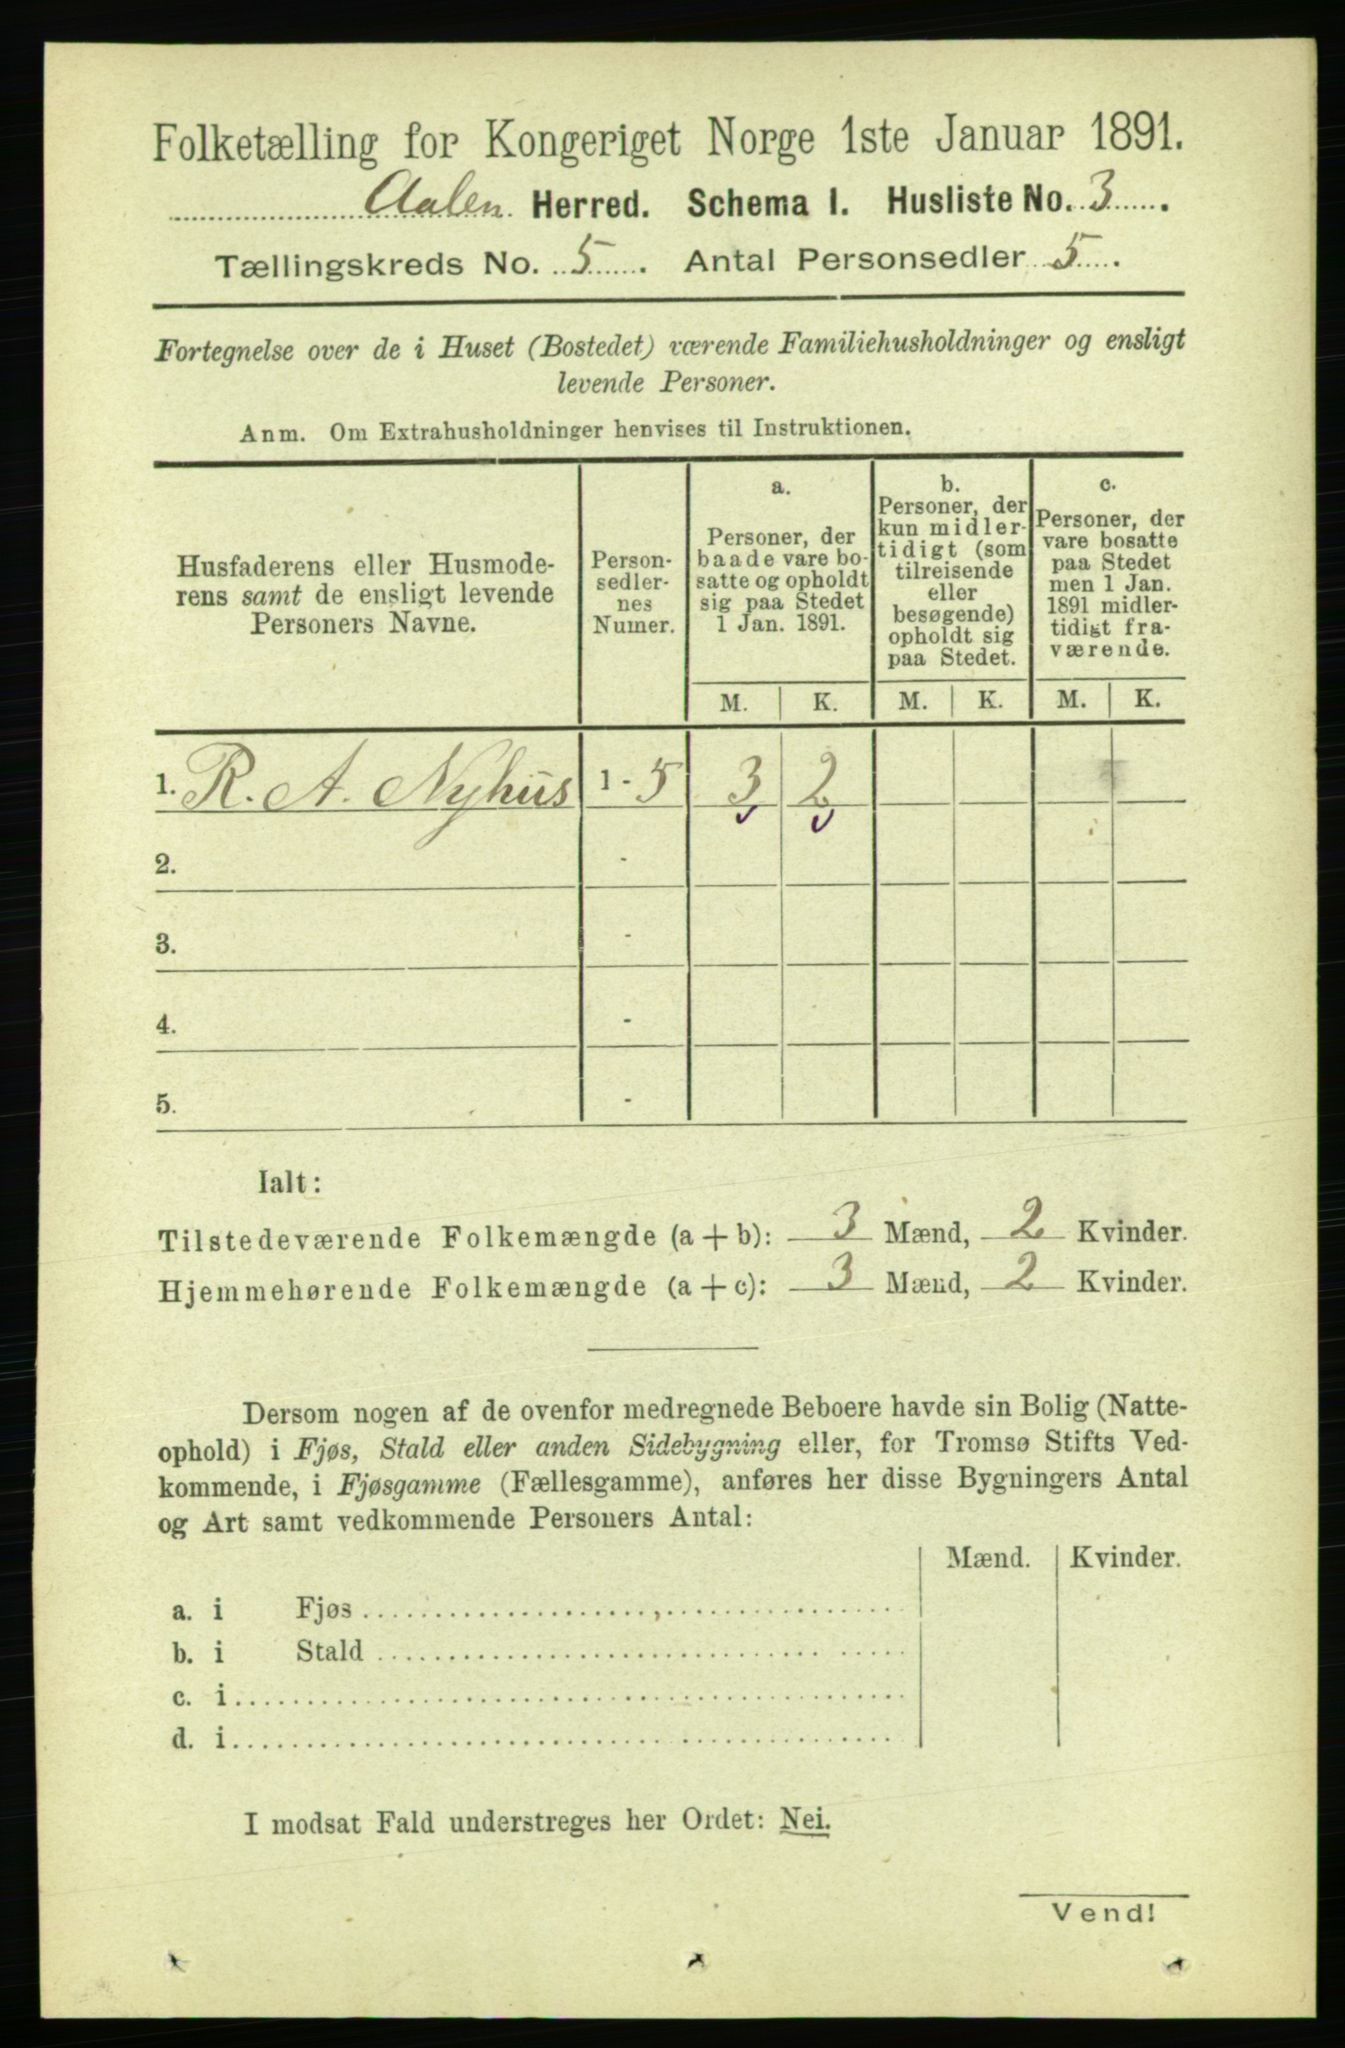 Folketælling for Kongeriget Norge 1ste Januar 1891.
Aalen Herred. Schema I. Husliste No. 3.
Tællingskreds No. 5. Antal Personsedler 5.
Fortegnelse over de i Huset (Bostedet) værende Familiehusholdninger og ensligt
levende Personer.
Anm. Om Extrahusholdninger henvises til Instruktionen.
Husfaderens eller Husmode-
rens samt de ensligt levende
Personers Navne.
Person-
sedler-
nes
Numer.
a.
Personer, der
baade vare bo-
satte og opholdt
sig paa Stedet
1 Jan. 1891.
b.
Personer, der
kun midler-
tidigt (som
tilreisende
eller
besøgende)
opholdt sig
paa Stedet.
c.
Personer, der
vare bosatte
paa Stedet
men 1 Jan.
1891 midler-
tidigt fra-
værende.
M. K. M. K. M. K.
1. R. A. Nyhus 1 - 5 3 2
2. -
3. -
4. -
5. -
Ialt:
Tilstedeværende Folkemængde (a + b): 3 Mænd, 2 Kvinder.
Hjemmehørende Folkemængde (a + c): 3 Mænd, 2 Kvinder.
Dersom nogen af de ovenfor medregnede Beboere havde sin Bolig (Natte-
ophold) i Fjøs, Stald eller anden Sidebygning eller, for Tromsø Stifts Ved-
kommende, i Fjøsgamme (Fællesgamme), anføres her disse Bygningers Antal
og Art samt vedkommende Personers Antal:
Mænd. Kvinder.
a. i Fjøs
b. i Stald
c. i
d. i
I modsat Fald understreges her Ordet: Nei.
Vend!